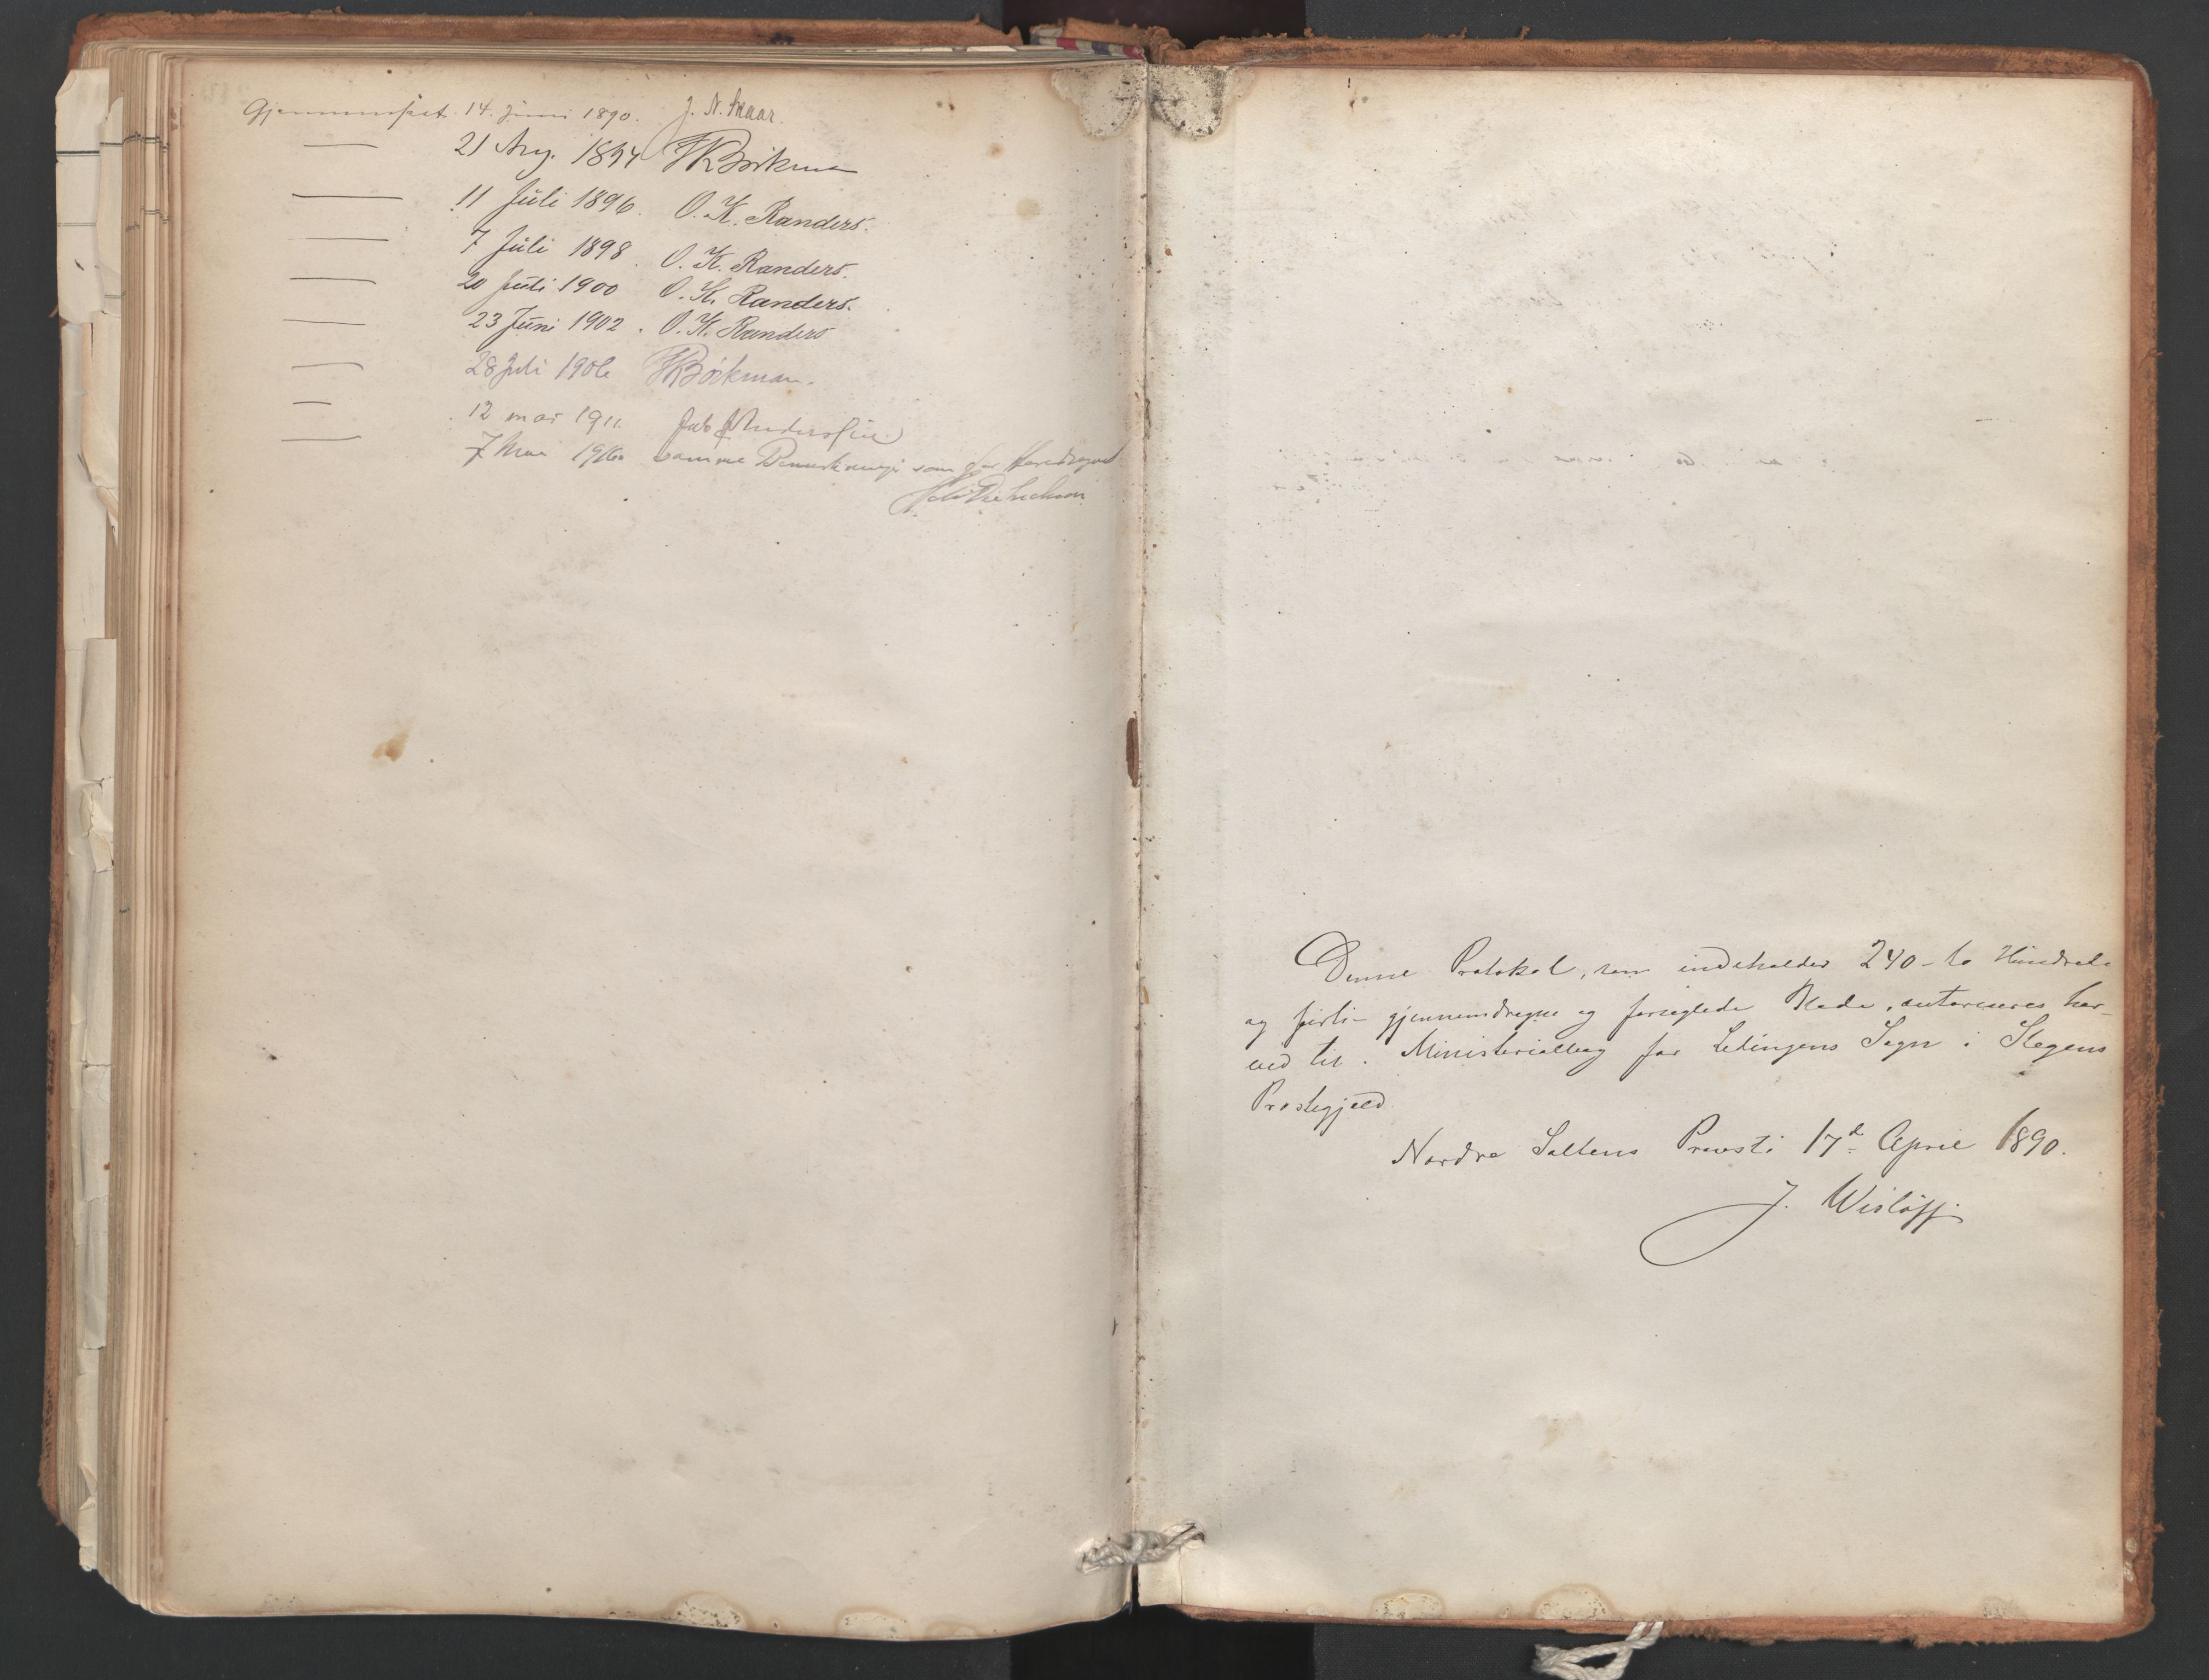 Gjennemseet 14. juni 1890. J. N. Skaar.
— 21 Aug. 1894 Bøckman
— 11 Juli 1896. O. K. Randers.
— 7 Juli 1898. O. K. Randers.
— 20 Juli 1900 O. K. Randers.
— 23 Juni 1902. O. K. Randers
— 28 Juli 1906 Bøckman.
— 12 mai 1911
— 7 Mai samme som
Denne Protokol, som indeholder 240 - to Hundrede
og firti - gjennemdragne og forseglede Blade, autoriseres her-
ved til Ministerialbog for Ledingens Sogn i Stegens
Præstegjeld
Nordre Saltens Provsti 17d April 1890.
J. Wisløff